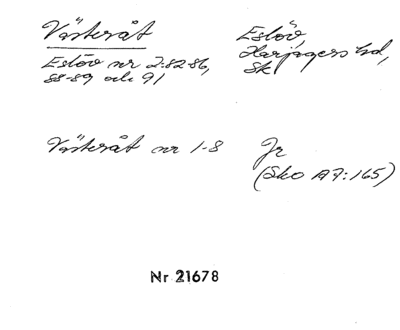 Västeråt
Eslöv,
Harjagers hd,
Sk
Eslöv nr 2:82-86,
88-89 och 91
Västeråt nr 1-8
Jr
(Sko A7:165)
Nr 21678